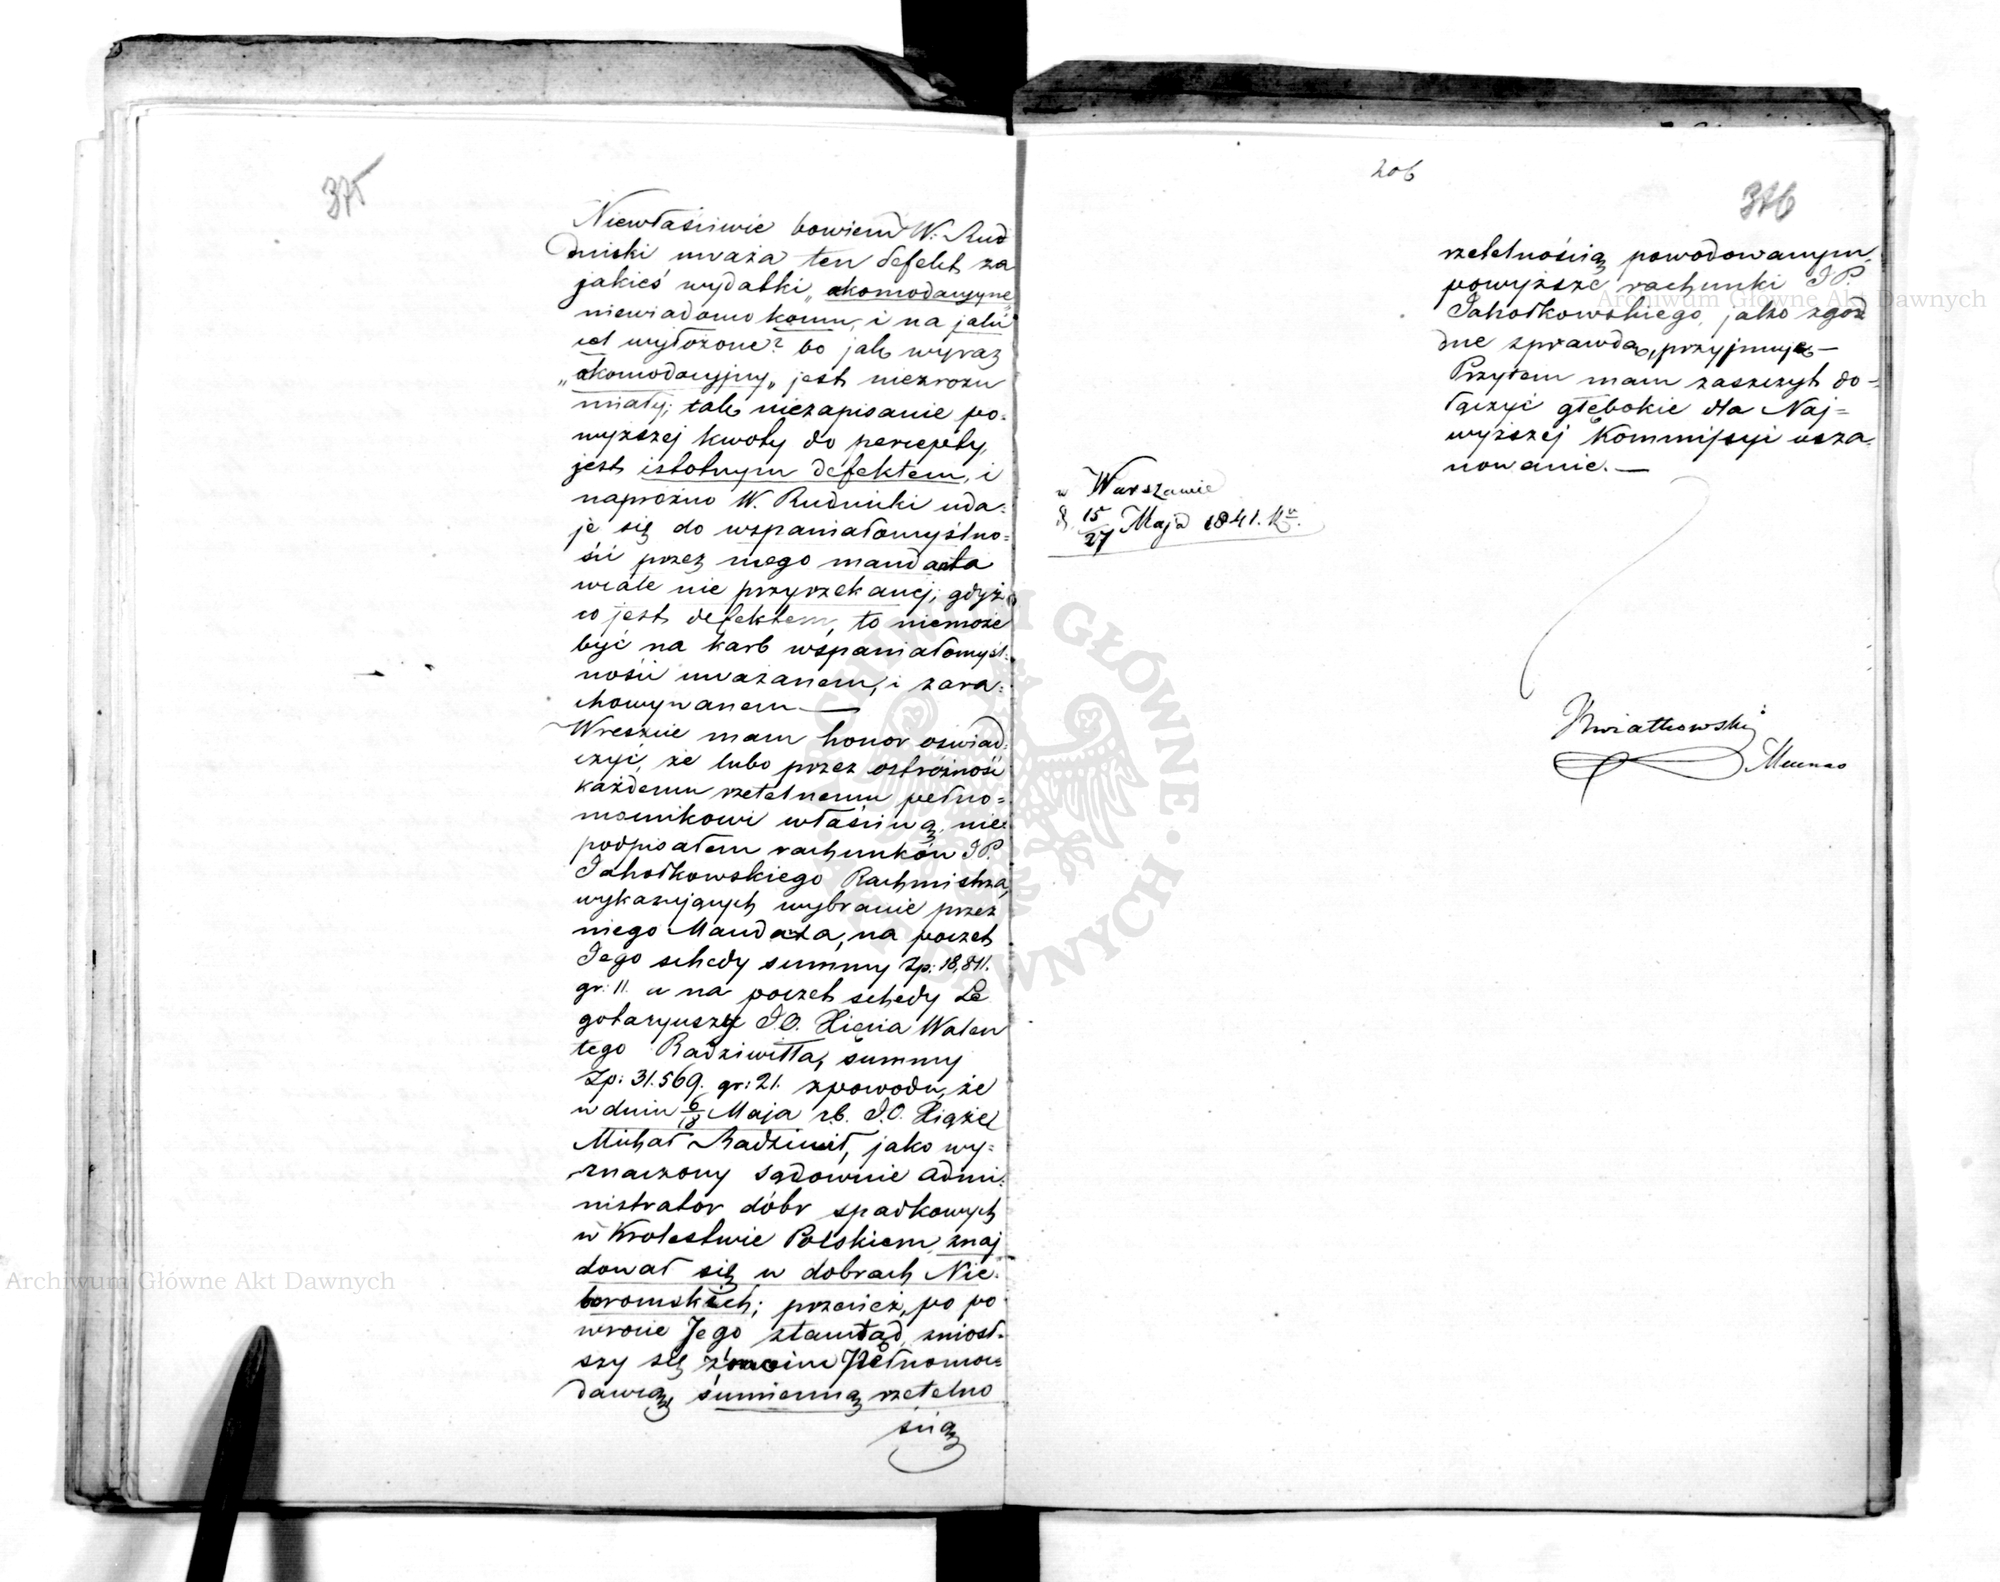 375
Niewłaściwie bowiem W. Rud
dnicki uważa ten defekt za
jakieś wydatki „akomodacyjne
niewiadomo komu, i na jaki
cel wyłożone? bo jak wyraz
„akomodacyjny„ jest niezrozu
miały; tak niezapisanie po=
wyższej kwoty do percepty,
jest istotnym defektem, i
napróżno W. Rudnicki uda=
je się do wspaniałomyślno=
ści przez mego mandanta
wcale nie przyrzekanej; gdyż
co jest defektem, to niemoże
być na karb wspaniałomyśl=
ności uważanem, i zara=
chowywanem —
Wreszcie mam honor oświad=
czyć, że lubo przez ostróżność
każdemu rzetelnemu pełno=
mocnikowi właściwą, nie
podpisałem rachunków JP.
Jahołkowskiego Rachmistrza,
wykazujących wybranie przez
niego Mandata, na poczet
Jego schedy summy Zp: 18,811.
gr: 11. a na poczet schedy Le
gotaryusza J.O. Xięcia Walen
tego Radziwiłła, summy
Zp: 31.569. gr: 21. zpowodu, że
w dniu 6/18 Maja r.b. J.O. Xiąże
Michał Radziwił, jako wy=
znaczony sądownie admi=
nistrator dóbr spadkowych
w Królestwie Polskiem, znaj
dował się w dobrach Nie=
borowskich; przecież, po po
wrocie Jego ztamtąd, zniosł=
szy się z moim Pełnomoc=
dawcą, sumienną rzetelno
ścią
206
376
rzetelnością powodowanym,
powyższe rachunki JP.
Jahołkowskiego, jako zgo
dne z prawdą, przyjmuję —
Przytem mam zaszczyt do=
łączyć głębokie dla Naj=
wyższej Kommissyi usza=
nowanie. —
w Warszawie
d. 15/27 Maja 1841. Ru.
Kwiatkowski
Mecenas
Archiwum Główne Akt Dawnych
Archiwum Główne Akt Dawnych
ARCHIWUM GŁÓWNE AKT DAWNYCH